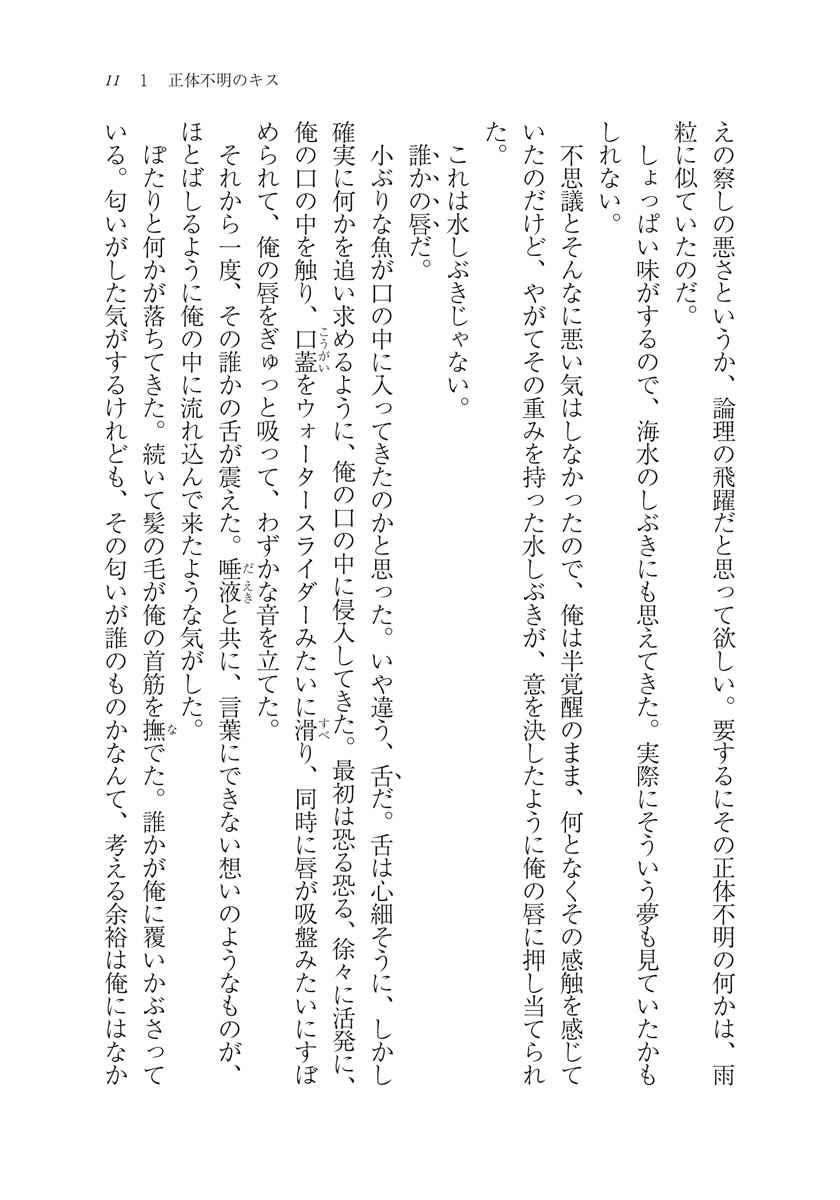 11　1　正体不明のキス
えの察しの悪さというか、論理の飛躍だと思って欲しい。要するにその正体不明の何かは、雨
粒に似ていたのだ。
しょっぱい味がするので、海水のしぶきにも思えてきた。実際にそういう夢も見ていたかも
しれない。
不思議とそんなに悪い気はしなかったので、俺は半覚醒のまま、何となくその感触を感じて
いたのだけど、やがてその重みを持った水しぶきが、意を決したように俺の唇に押し当てられ
た。
これは水しぶきじゃない。
誰かの唇だ。
小ぶりな魚が口の中に入ってきたのかと思った。いや違う、舌だ。舌は心細そうに、しかし
確実に何かを追い求めるように、俺の口の中に侵入してきた。最初は恐る恐る、徐々に活発に、
俺の口の中を触り、口蓋をウォータースライダーみたいに滑り、同時に唇が吸盤みたいにすぼ
められて、俺の唇をぎゅっと吸って、わずかな音を立てた。
それから一度、その誰かの舌が震えた。唾液と共に、言葉にできない想いのようなものが、
ほとばしるように俺の中に流れ込んで来たような気がした。
ぽたりと何かが落ちてきた。続いて髪の毛が俺の首筋を撫でた。誰かが俺に覆いかぶさって
いる。匂いがした気がするけれども、その匂いが誰のものかなんて、考える余裕は俺にはなか